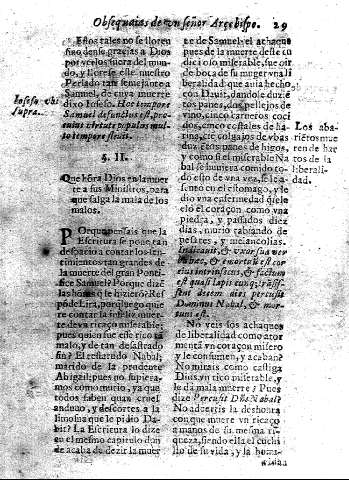 Obsequias de un señor Arçobispo. 29
Estos tales no se lloren
sino dense gracias a Dios
por verlos fuera del mundo,
y llorese este nuestro
Perlado tan semejante a
Samuel, de cuya muerte
dixo Iosefo. Hoc tempore
Samuel defunctus est, pro
cuius virtute populus mul
to tempore flevit.
Iosefo ubi
supra.
§. II.
Que honra Dios en la muer
te a sus Ministros, para
que salga la mala de los
malos.
POrque pensais que la
Escritura se pone tan
despacio a contar los sen
timientos tan grandes de
la muerte del gran Ponti
fice Samuel? Porque dizẽ
las honras que le hizierõ? Res
põde Lira, porque luego quie
re contar la infeliz muer
te de un ricaço miserable;
pues quien fue este rico tã
malo, y de tan desastrado
fin? El resiando Nabal,
marido de la prudente
Abigail; pues no supiera
mos como murio, ya que
todos saben quan cruel
anduuo, y descortes a la
limosna que le pidio Da
bit? La Escritura lo dize
en el mesmo capitulo don
de acaba de dezir la muer
te de Samuel, el achaque
pues de la muerte deste cu
dicioso miserable, fue oir
de boca de su muger vna li
beralidad que auia hecho
con Dauit, dandole duziẽ
tos panes, dos pellejos de
vino, cinco carneros coci
dos, cinco costales de ha
rina, cie colgajos de vbas
duzientos panes de higos,
y como si el miserable Na
bal se huuiera comido to
do esso de vna vez, se le a
sento en el estomago, y le
dio vna enfermedad que le
elò el coraçon como vna
piedra, y passados diez
dias, murio rabiando de
pesares, y melancolias.
Indicauit, & vxor sua ver
ba hæc, & emortuũ est cor
eius intrinsecus, & factum
est quasi lapis cumq; trãsis
sent decem dies percusit
Dominus Nabal, & mor
tuus est.
Los aba
riẽtos mue
ren de har
tos de la
liberali-
dad.
No veis los achaques
de liberalidad como ator
mentã vn coraçon misero
y le consumen, y acabanẽ
No mirais como castiga
Dios vn rico miserable, y
le da mala muerte? Pues
dize Percusit Dñs Nabal?
No aduertis la deshonra
con que muere vn ricaço
a manos de su mesma ri
queza, siendo ella el cuchi
llo de su vida, y la huma-